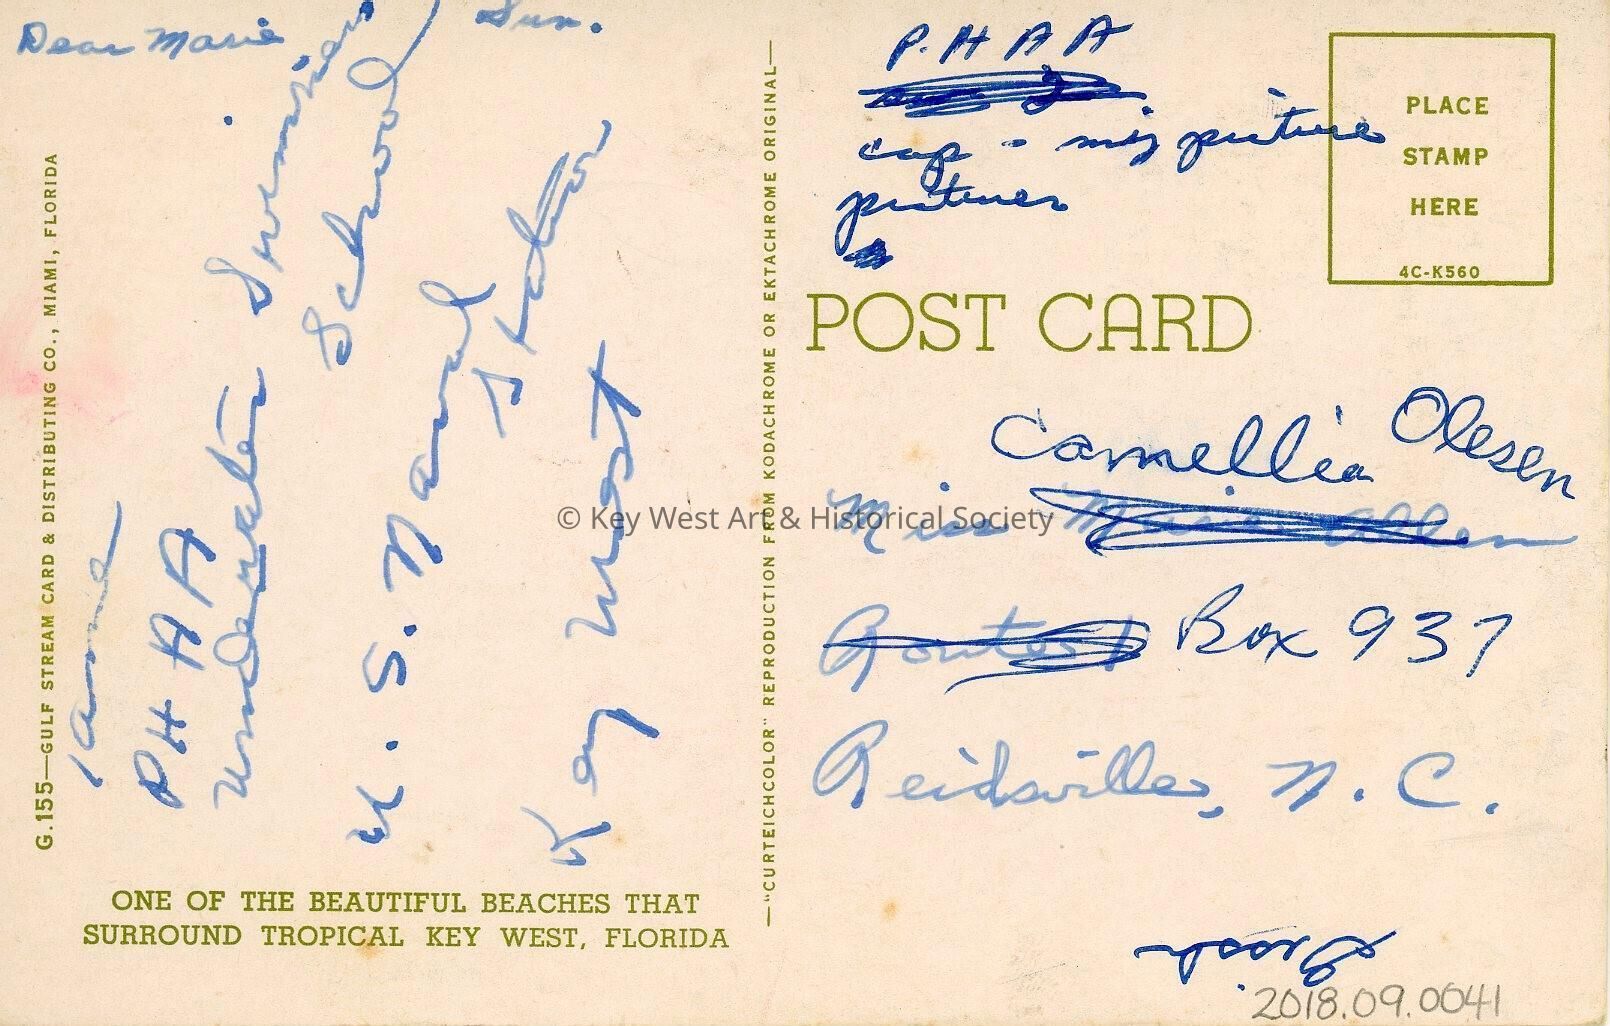 Dear Marie
Sun.
PHAA
Underwater Swimmers
School
U.S. Naval
Key West
G.155—GULF STREAM CARD & DISTRIBUTING CO., MIAMI, FLORIDA
ONE OF THE BEAUTIFUL BEACHES THAT
SURROUND TROPICAL KEY WEST, FLORIDA
—"CURTEICHCOLOR" REPRODUCTION FROM KODACHROME OR EKTACHROME ORIGINAL—
P.HAA
cap - my picture
pictures
PLACE
STAMP
HERE
4C-K560
POST CARD
Camellia Olesen
Miss Marie Allen
Route 1 Box 937
Reidsville, N.C.
© Key West Art & Historical Society
2018.09.0041